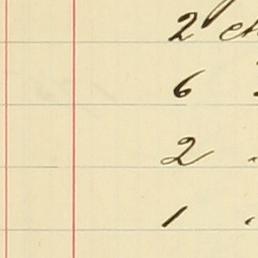 2
6
2
1